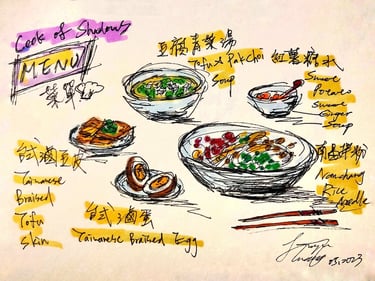 Cook of Shadows
MENU
菜單
豆腐青菜湯
Tofu & Pak Choi
Soup
紅薯糖水
Sweet
Potato
Sweet
Ginger
Soup
台式滷豆皮
Taiwanese
Braised
Tofu
Skin
台式滷蛋
Taiwanese Braised Egg
南昌拌粉
Nanchang
Rice
Noodle
03.2023